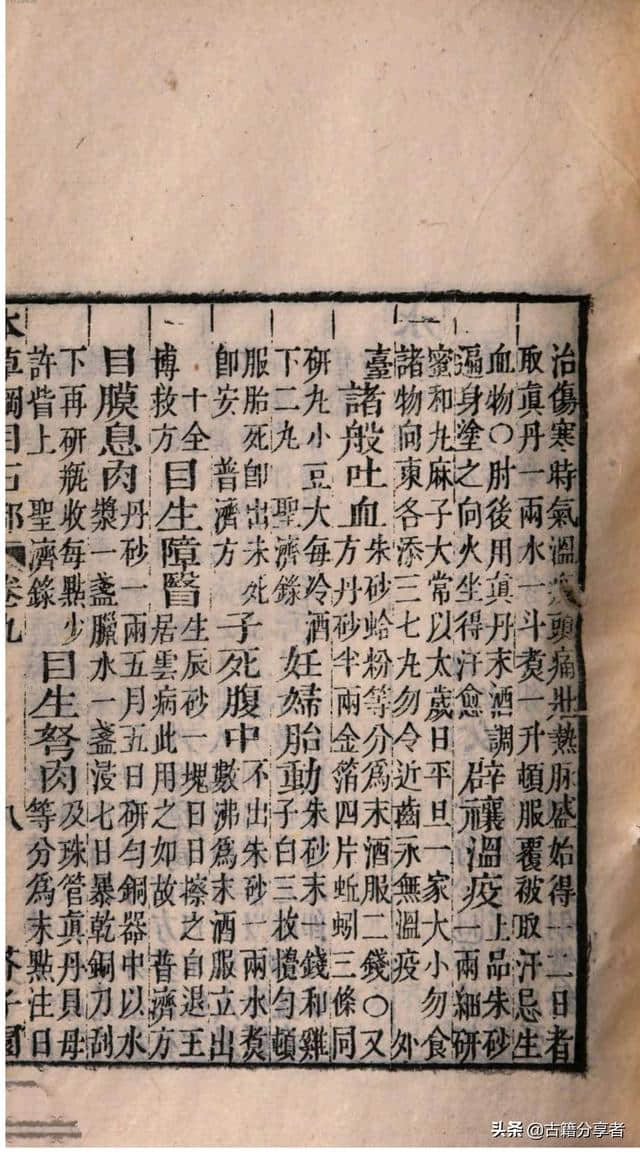 治傷寒時氣溫疫頭痛壯熱脉盛始得一二日者
取真丹一兩水一斗煮一升頓服覆被取汗忌生
血物○肘後用真丹末酒調
遍身塗之向火坐得汗愈
辟禳溫疫
上品朱砂
一兩細研
蜜和丸麻子大常以太歲日平旦一家大小勿食
諸物向東各添三七丸勿令近齒永無溫疫 外
臺
諸般吐血
朱砂蛤粉等分爲末酒服二錢○又
方丹砂半兩金箔四片蚯蚓三條同
研丸小豆大每冷酒
下二丸 聖濟錄
妊婦胎動
朱砂末一錢和雞
子白三枚攪勻頓
服胎死即出未死
即安 普濟方
子死腹中
不出朱砂一兩水煮
數沸爲末酒服立出
十全
博救方
目生障醫
生辰砂一塊日日擦之自退王
居雲病此用之如故 普濟方
目膜息肉
丹砂一兩五月五日研勻銅器中以水
漿一盞臘水一盞浸七日暴乾銅刀刮
下再研瓶收每點少
許眥上 聖濟錄
目生弩肉
及珠管真丹貝母
等分爲末點注日
本草綱目石部 卷九 八 芥子園
头条 @古籍分享者